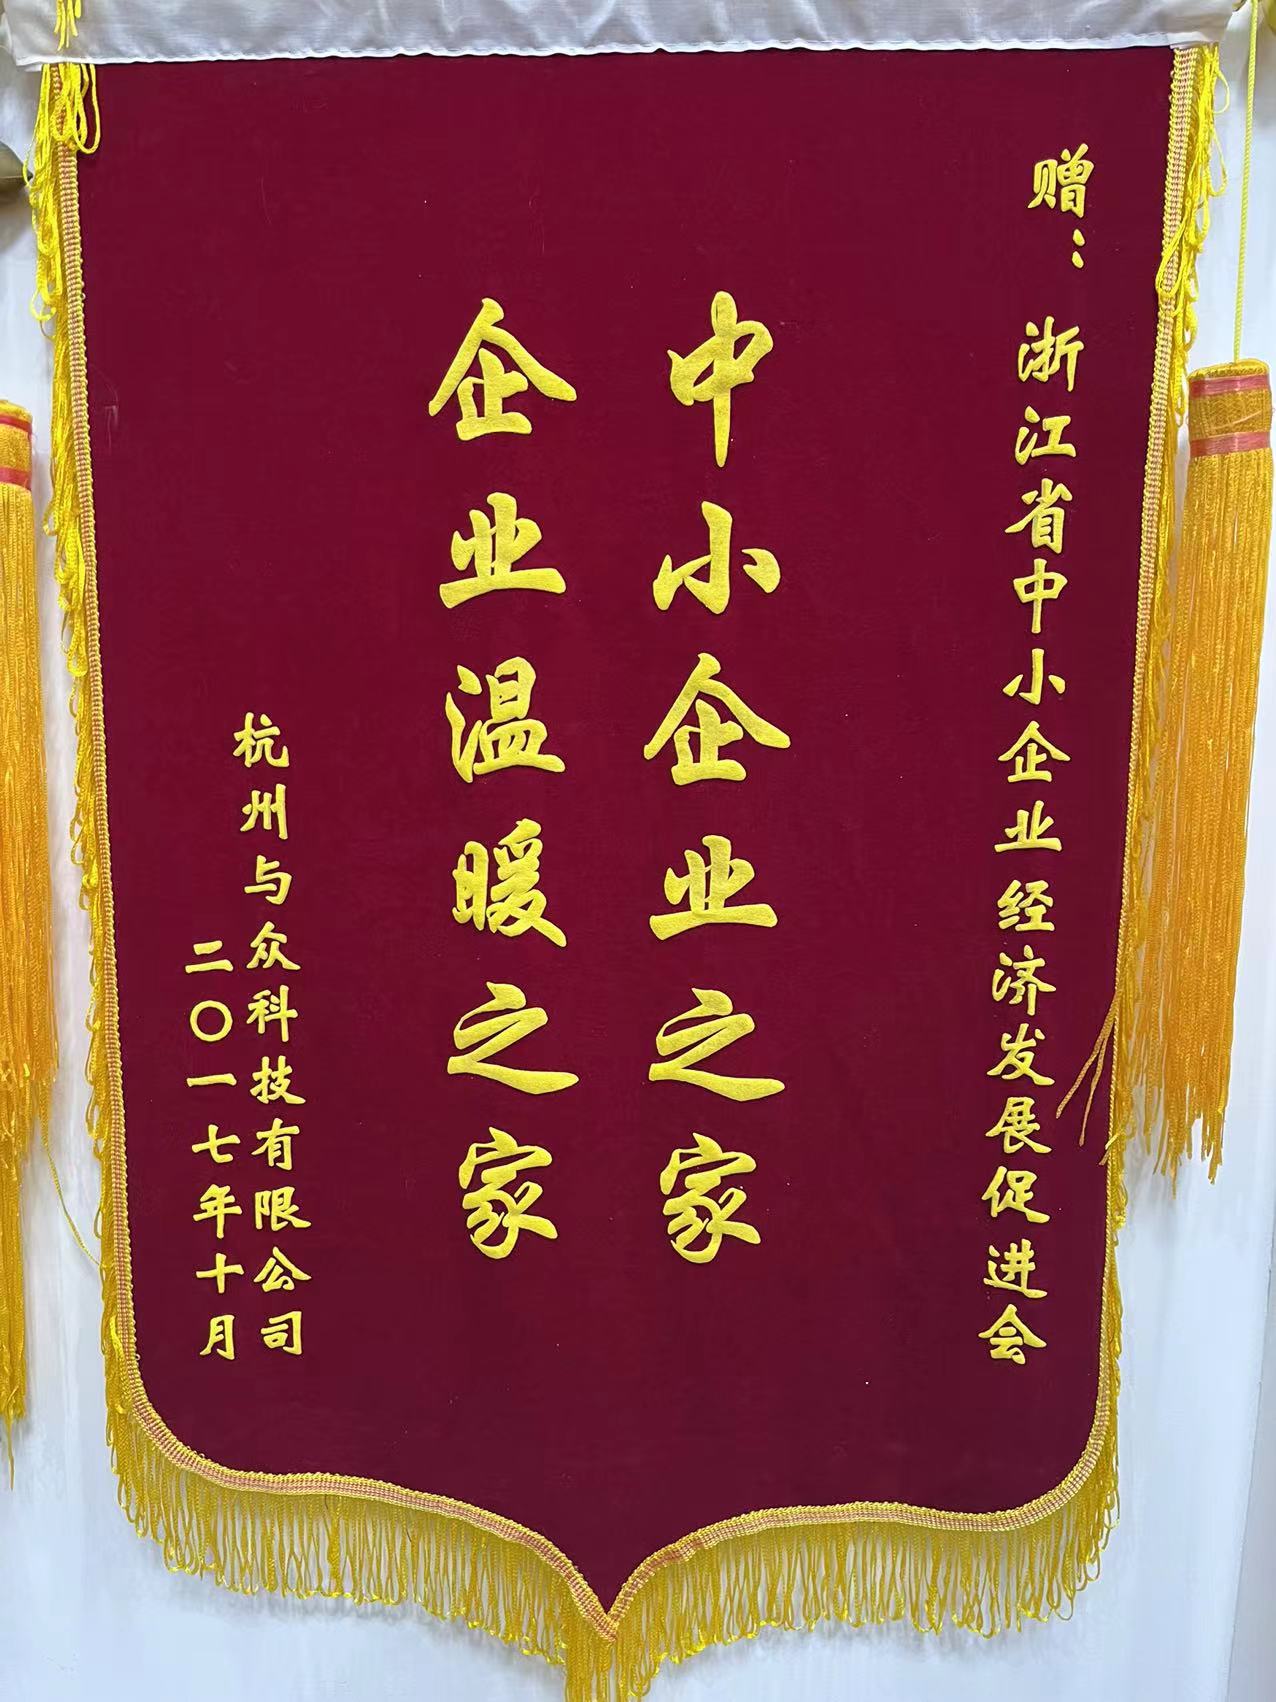 赠：浙江省中小企业经济发展促进会
中小企业之家
企业温暖之家
杭州与众科技有限公司
二〇一七年十月